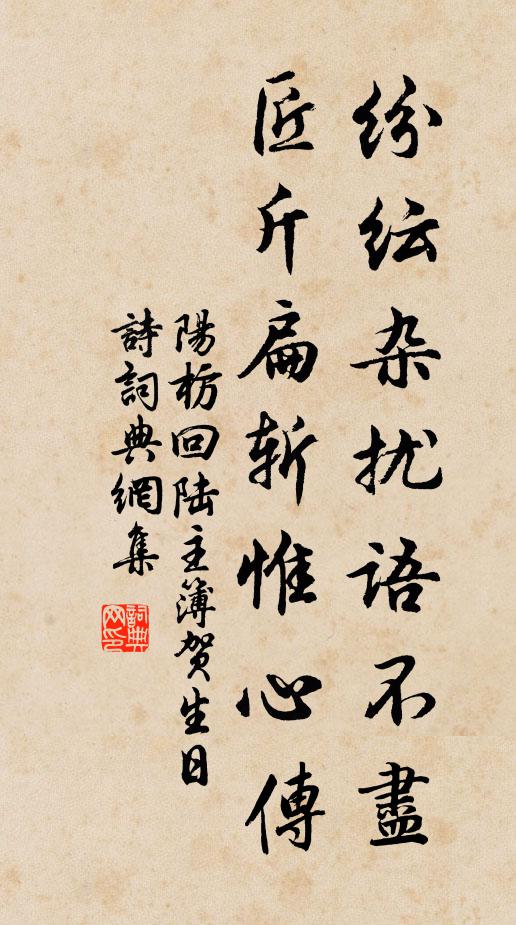 纷纭杂扰语不盡
匠斤扁斩惟心傳
陽枋回陆主簿贺生日
詩詞典網集
詞典网印